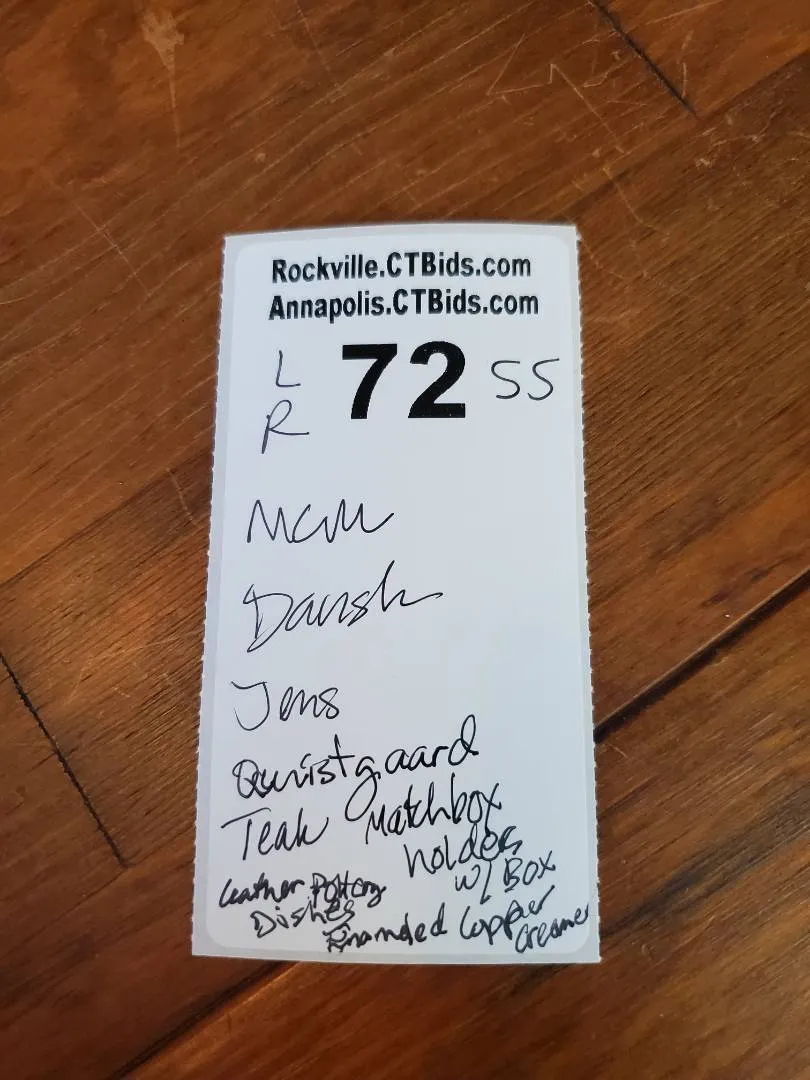 Rockville.CTBids.com
Annapolis.CTBids.com
L 72 SS
R
MCM
Dansk
Jens
Quistgaard
Teak Matchbox
holder
w/ Box
Leather Pottery
Dishes
Enameled Copper
Creamer